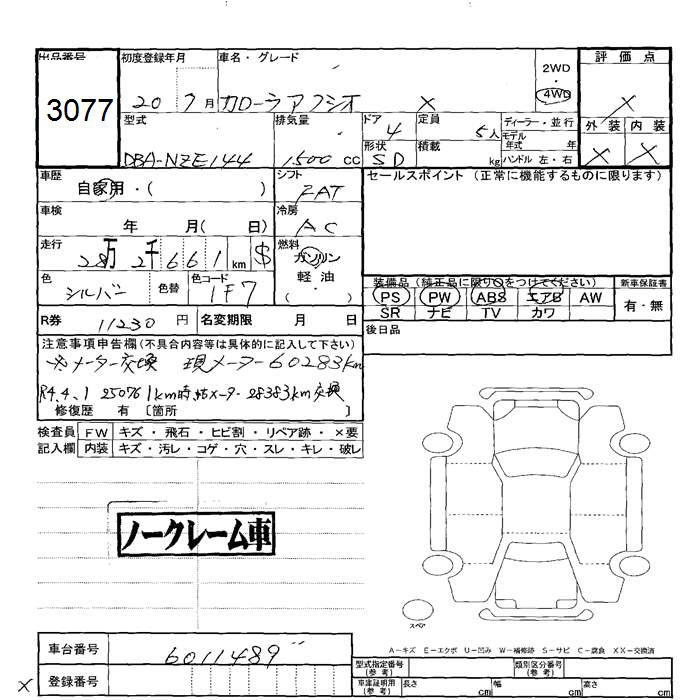 出品番号 初度登録年月 車名・グレード 2WD 評価点
3077 20 7月 カローラアクシオ X 4WD X
型式 排気量 ドア 定員 ディーラー・並行 外装 内装
DBA-NZE144 1500cc 4 5人 モデル年式 年 X X
形状 SD 積載 kg ハンドル 左・右
車歴 自家用・( ) シフト FAT セールスポイント (正常に機能するものに限ります)
車検 年 月( 日) 冷房 AC
走行 28万2千661km $ 燃料 ガソリン
軽・油
( )
色 シルバー 色替 色コード 1F7
装備品(純正品に限り○をつけてください) 新車保証書
PS PW ABS エアB AW 有・無
SR ナビ TV カワ
R券 11230円 名変期限 月 日
後日品
注意事項申告欄(不具合内容等は具体的に記入して下さい)
※メーター交換 現メーター60283km
R4.4.1 250761km時 メーター28383km交換
修復歴 有 〔箇所 〕
検査員 FW キズ・飛石・ヒビ割・リペア跡・×要
記入欄 内装 キズ・汚レ・コゲ・穴・スレ・キレ・破レ
ノークレーム車
スペア
A-キズ E-エクボ U-凹み W-補修跡 S-サビ C-腐食 XX-交換済
車台番号 6011489
型式指定番号(参考) 類別区分番号(参考)
X 登録番号
車庫証明用(参考) 長さ cm 幅 cm 高さ cm